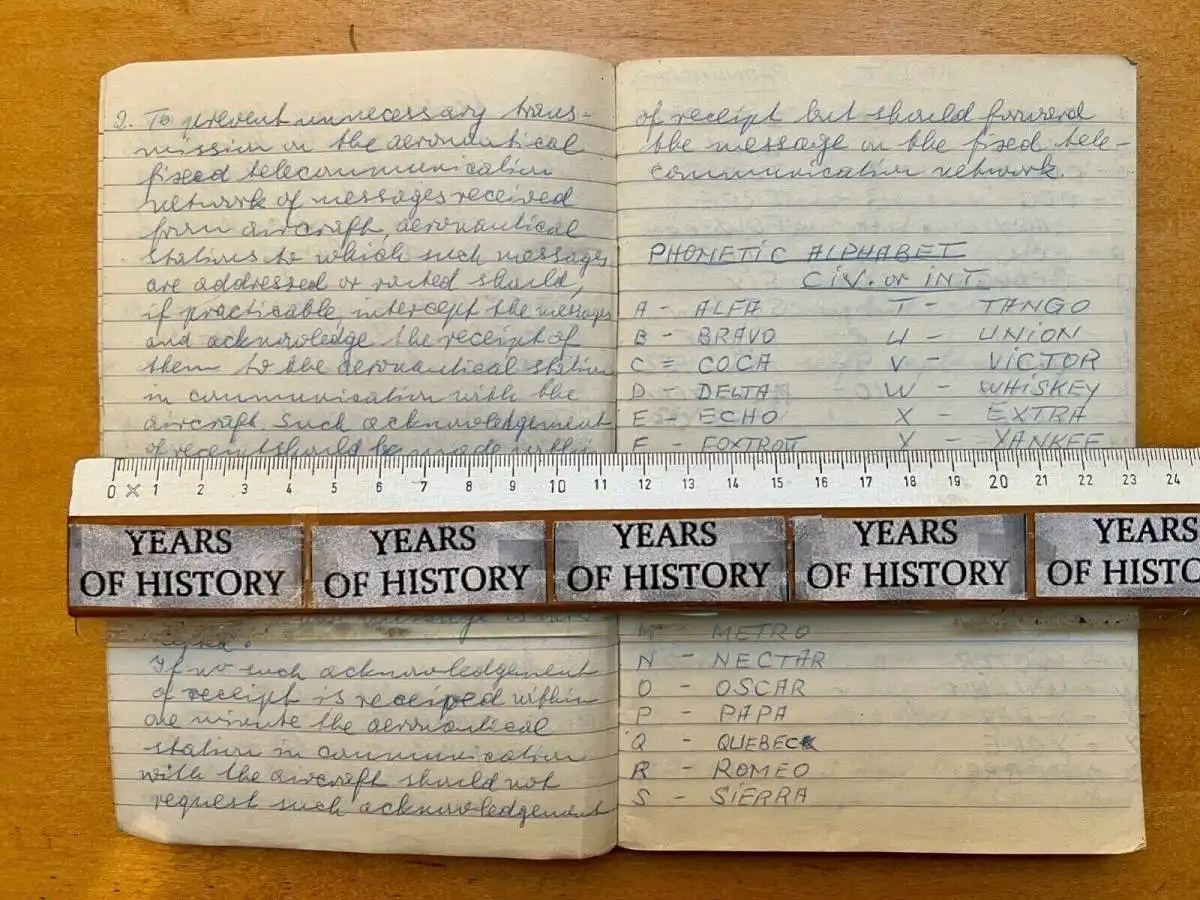 2. To prevent unnecessary trans=
mission on the aeronautical
fixed telecommunication
network of messages received
from aircraft, aeronautical
stations to which such messages
are addressed or routed should,
if practicable, intercept the messages
and acknowledge the receipt of
them to the aeronautical station
in communication with the
aircraft. Such acknowledgement
of receipt should be made within
If no such acknowledgement
of receipt is received within
one minute the aeronautical
station in communication
with the aircraft should not
request such acknowledgement
of receipt but should forward
the message on the fixed tele-
communication network.
PHONETIC ALPHABET
CIV. or INT.
A - ALFA
B - BRAVO
C = COCA
D - DELTA
E - ECHO
F - FOXTROTT
M - METRO
N - NECTAR
O - OSCAR
P - PAPA
Q - QUEBECK
R - ROMEO
S - SIERRA
T - TANGO
U - UNION
V - VICTOR
W - WHISKEY
X - EXTRA
Y - YANKEE
0 1 2 3 4 5 6 7 8 9 10 11 12 13 14 15 16 17 18 19 20 21 22 23 24
YEARS
OF HISTORY
YEARS
OF HISTORY
YEARS
OF HISTORY
YEARS
OF HISTORY
YEARS
OF HISTO